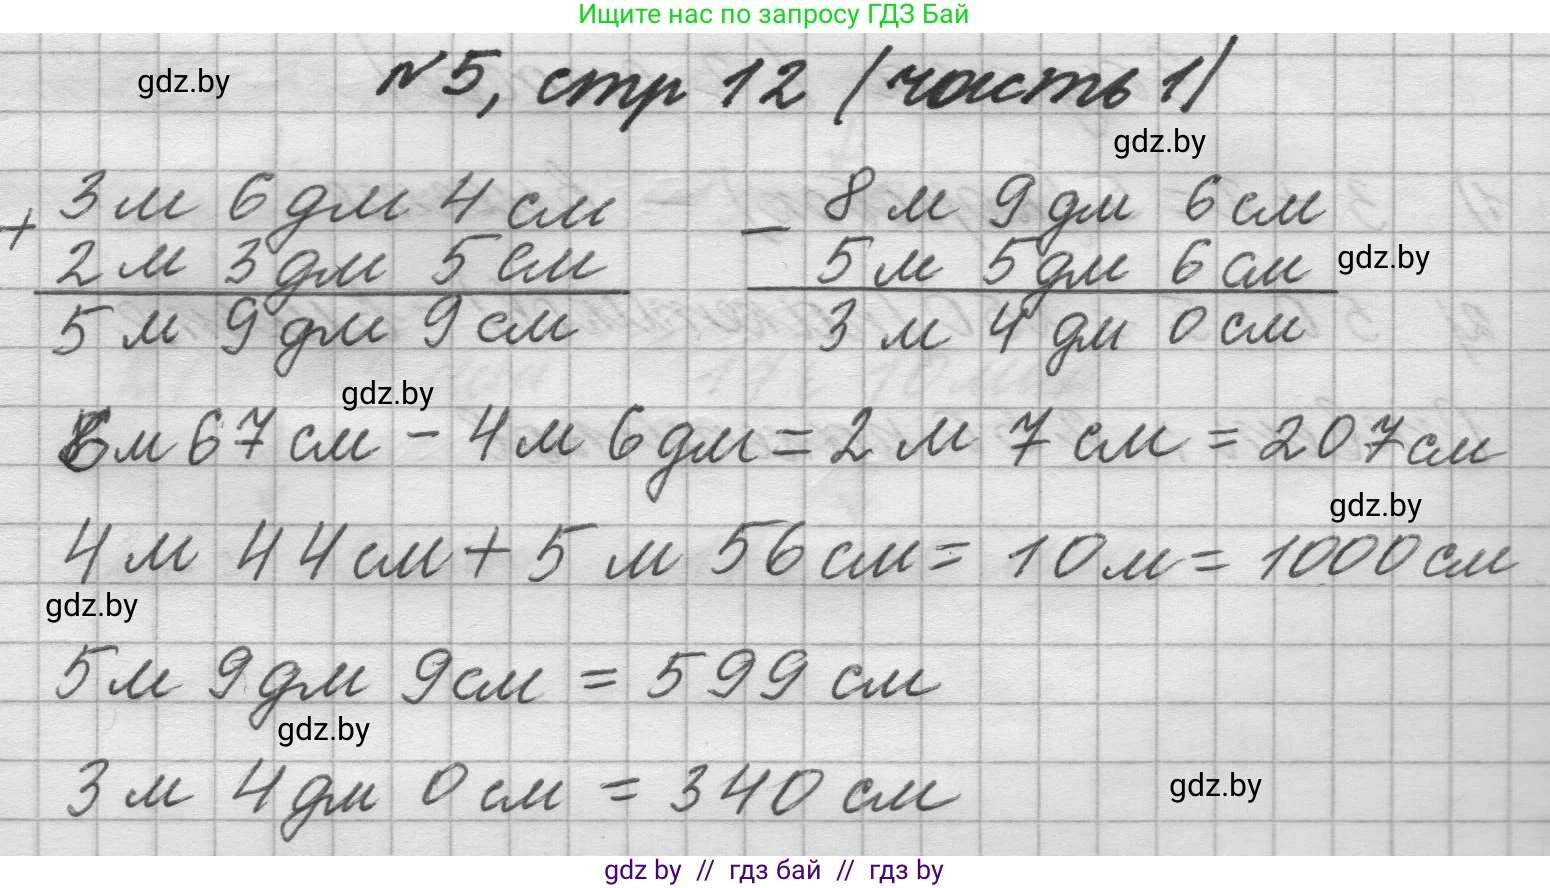 Ищите нас по запросу ГДЗ Бай
gdz.by
№5, стр 12 (часть 1)
gdz.by
+ 3м 6дм 4см
2м 3дм 5см
5м 9дм 9см
- 8м 9дм 6см
5м 5дм 6см
gdz.by
3м 4дм 0см
gdz.by
6м 67см - 4м 6дм = 2м 7см = 207см
gdz.by
4м 44см + 5м 56см = 10м = 1000см
gdz.by
5м 9дм 9см = 599 см
gdz.by
3м 4дм 0см = 340 см
gdz.by
gdz by // гдз бай // гдз by